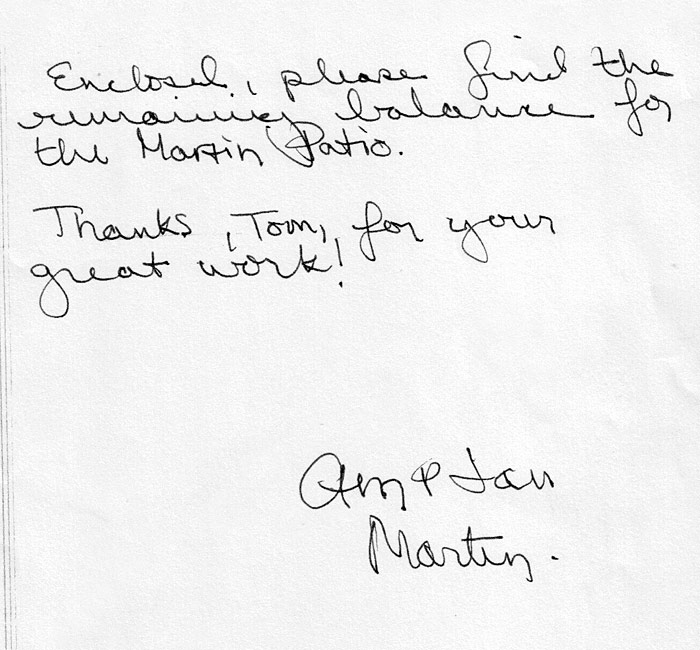 Enclosed, please find the
remaining balance for
the Martin Patio.
Thanks, Tom, for your
great work!
& Jan
Martin.